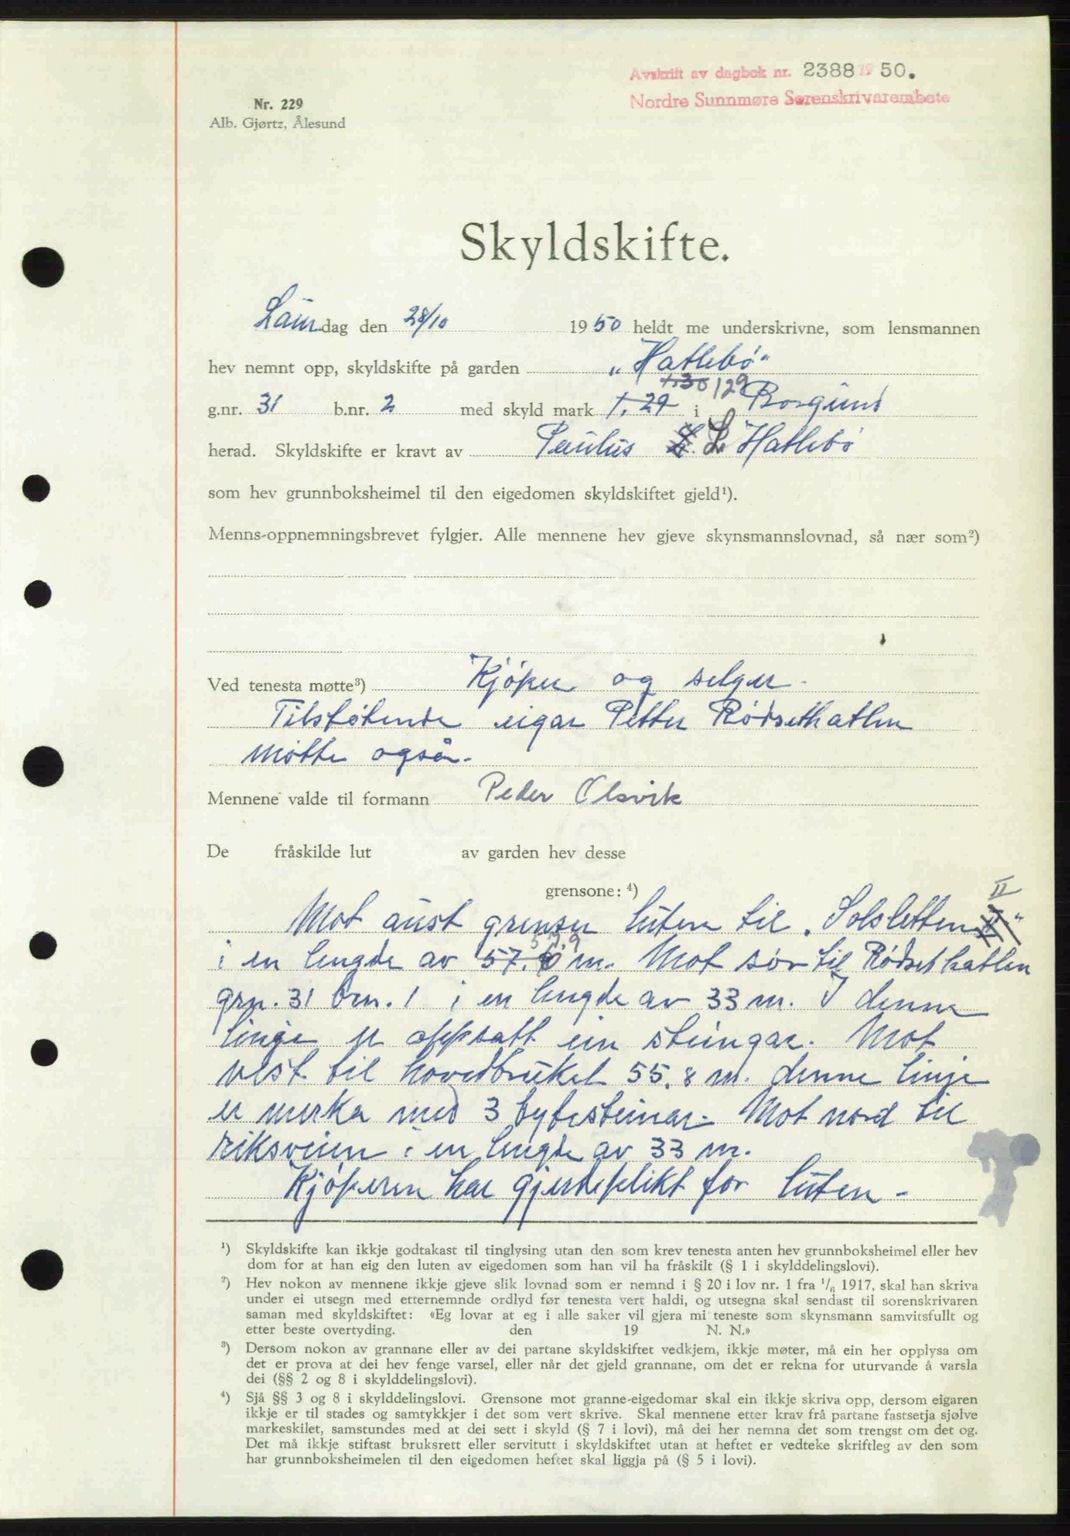 Avskrift av dagbok nr. 2388 1950.
Nordre Sunnmøre Sorenskrivarembete
Nr. 229
Alb. Gjørtz, Ålesund
Skyldskifte.
Laurdag den 28/10 1950 heldt me underskrivne, som lensmannen
hev nemnt opp, skyldskifte på garden „Hatlebö“
1.30 129
g.nr. 31 b.nr. 2 med skyld mark 1.29 i Borgund
herad. Skyldskifte er kravt av Paulus L Hatlebö
som hev grunnboksheimel til den eigedomen skyldskiftet gjeld¹).
Menns-oppnemningsbrevet fylgjer. Alle mennene hev gjeve skynsmannslovnad, så nær som²)
Ved tenesta møtte³) Kjöper og selger.
Tilstötende eigar Petter Rödsethatlen
mötte også.
Mennene valde til formann Peder Olsvik
De fråskilde lut av garden hev desse
grensone: ⁴)
II
Mot aust grenser luten til „Solsletten“
57.9
i en lengde av 57.6 m. Mot sör til Rødsethatlen
grn. 31 brn. 1 i en lengde av 33 m. I denne
linje er oppsatt ein steingar. Mot
vest til hovedbruket 55,8 m. denne linje
er merka med 3 bytesteinar. Mot nord til
riksveien i en lengde av 33 m.
Kjöperen har gjerdeplikt for luten.
¹) Skyldskifte kan ikkje godtakast til tinglysing utan den som krev tenesta anten hev grunnboksheimel eller hev
dom for at han eig den luten av eigedomen som han vil ha fråskilt (§ 1 i skylddelingslovi).
²) Hev nokon av mennene ikkje gjeve slik lovnad som er nemnd i § 20 i lov nr. 1 fra ¹/₆ 1917, skal han skriva
under ei utsegn med etternemnde ordlyd før tenesta vert haldi, og utsegna skal sendast til sorenskrivaren
saman med skyldskiftet: «Eg lovar at eg i alle saker vil gjera mi teneste som skynsmann samvitsfullt og
etter beste overtyding. den 19 N. N.»
³) Dersom nokon av grannane eller av dei partane skyldskiftet vedkjem, ikkje møter, må ein her opplysa om
det er prova at dei hev fenge varsel, eller når det gjeld grannane, om det er rekna for uturvande å varsla
dei (§§ 2 og 8 i skylddelingslovi).
⁴) Sjå §§ 3 og 8 i skylddelingslovi. Grensone mot granne-eigedomar skal ein ikkje skriva opp, dersom eigaren
ikkje er til stades og samtykkjer i det som vert skrive. Skal mennene etter krav frå partane fastsetja sjølve
markeskilet, samstundes med at dei sett i skyld (§ 7 i lovi), må dei her nemna det som trengst om det og.
Det må ikkje stiftast bruksrett eller servitutt i skyldskiftet utan at heftet er vedteke skriftleg av den som
har grunnboksheimelen til den eigedomen heftet skal liggja på (§ 5 i lovi).